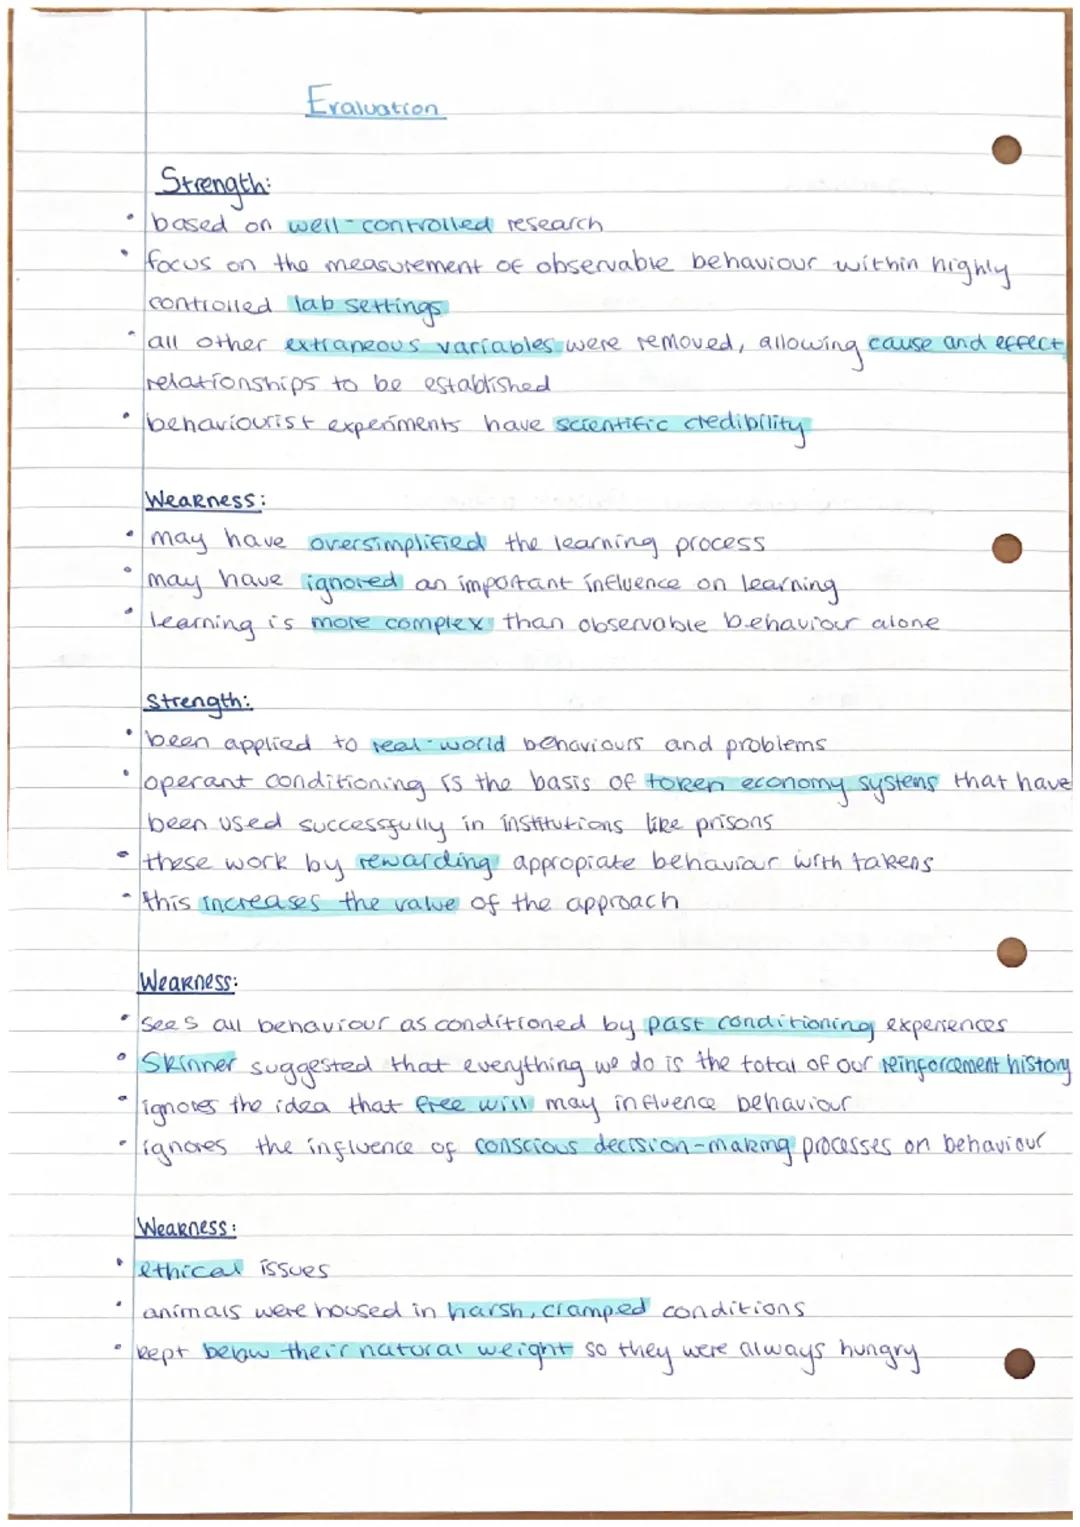 Evaluation
Strength:
• based on well-controlled research
• focus on the measurement of observable behaviour within highly
controlled lab settings
• all other extraneous variables were removed, allowing cause and effect
relationships to be established
• behaviourist experiments have scientific credibility
Weakness:
• may have oversimplified the learning process
• may have ignored an important influence on learning
• learning is more complex than observable behaviour alone
Strength:
• been applied to real-world behaviours and problems
• operant conditioning is the basis of token economy systems that have
been used successfully in institutions like prisons
• these work by rewarding appropiate behaviour with tokens
• this increases the value of the approach
Weakness:
• sees all behaviour as conditioned by past conditioning experiences
• Skinner suggested that everything we do is the total of our reinforcement history
• ignores the idea that free will may influence behaviour
• ignores the influence of conscious decision-making processes on behaviour
Weakness:
• ethical issues
• animals were housed in harsh, cramped conditions
• kept below their natural weight so they were always hungry